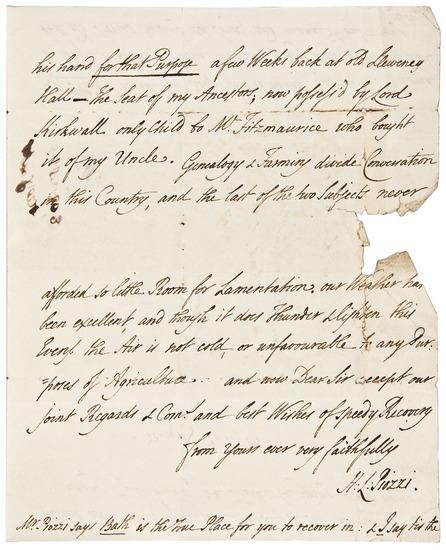 his hand for that Purpose a few Weeks back at old Lleweney
Hall — The Seat of my Ancestors; now possess'd by Lord
Kirkwall only Child to Mr. Fitzmaurice who bought
it of my Uncle. Genealogy & Farming divide Conversation
in this Country, and the last of the two Subjects never
afforded so little Room for Lamentation, our Weather has
been excellent and though it does Thunder & lighten this
Even.g the Air is not cold, or unfavourable to any Pur-
poses of Agriculture. and now Dear Sir accept our
joint Regards & Com.s and best Wishes of speedy Recovery
from Yours ever very faithfully
H: L: Piozzi.
Mr. Piozzi says Bath is the True Place for you to recover in: & I say 'tis the